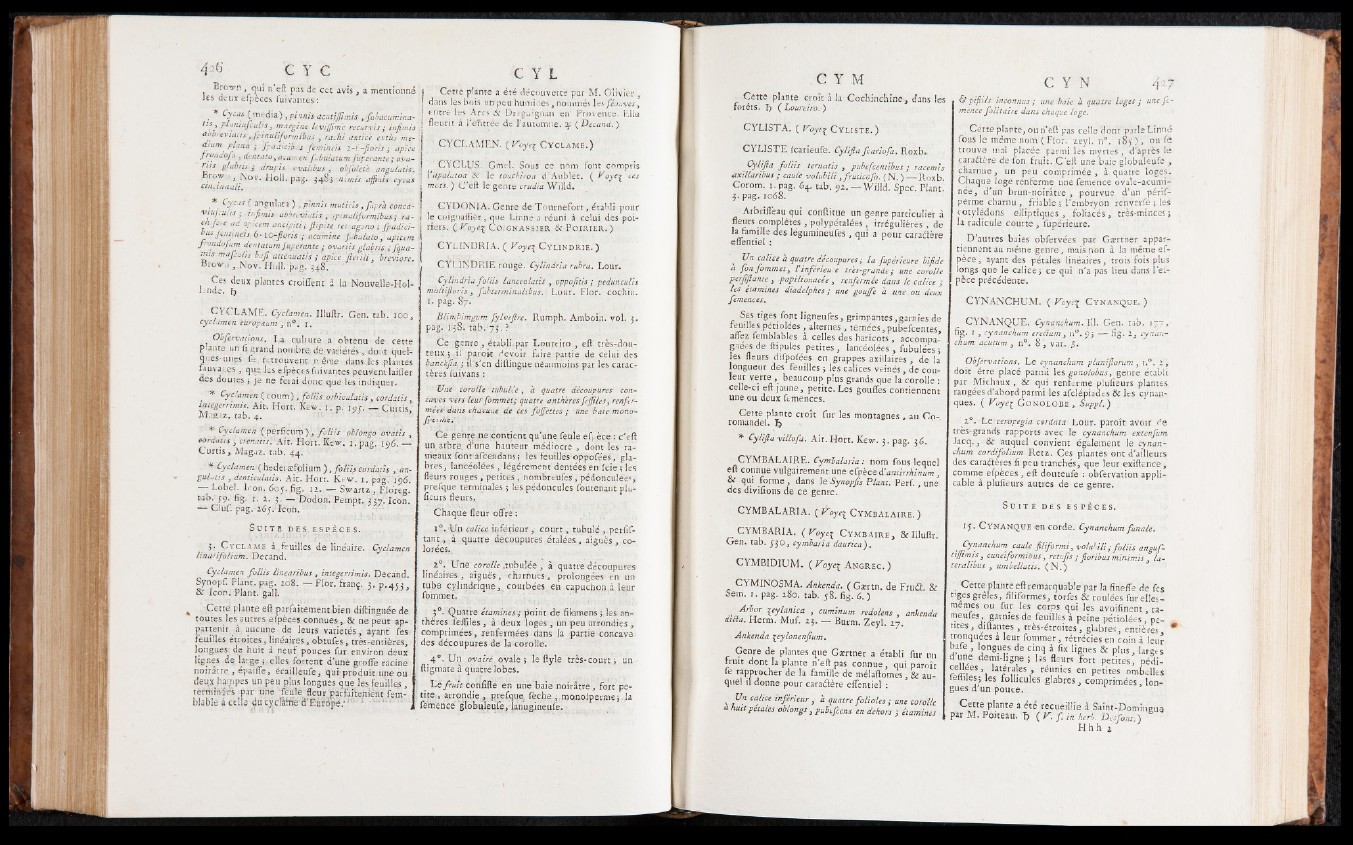 426 C Y C
Brown, qui n'eſt pas de cet avis, a mentionné
les deux eſpèces ſuivantes:
* Cycas (media), pinnis acutiſſimis, ſubacumina-
tis, planiuſculis, margine leviſſimè recurvis; infimis
abbreviatis, ſpinuliformibus, rachi anticè extùs me-
dium planâ; ſpadicibus
frondoſo, dentato, acumen ſubulatum ſuperante; ova-
riis glabris; drupis ovalibus, obſoletè angulatis.
Brown, Nov. Holl. pag. 348. nimis affinis cycas
circinnali.
* Cycas (angulata), pinnis muticis, ſuprà conca-
viuſculis; infimis abbreviatis, ſpinuliformibus; ra-
chi ferè ad apicem ancipiti; ſtipite tetragono; ſpadici-
bus femineis 6-10-floris; acumine ſubulato, apicem
frondoſum dentatum ſuperante; ovariis glabris; ſqua-
mis maſculis baſi attenuatis; apice ſterili, breviore.
Brown, Nov. Holl. pag. 348.
Ces deux plantes croiſſent à la Nouvelle-Hol-
lande. ♄
CYCLAME. Cyclamen. Illuſtr. Gen. tab. 100,
cyclamen europæum, n°. 1.
Obſervations. La culture a obtenu de cette
plante un ſi grand nombre de variétés, dont quel-
ques-unes ſe retrouvent même dans les plantes
ſauvages, que les eſpèces ſuivantes peuvent laiſſer
des doutes; je ne ferai donc que les indiquer.
* Cyclamen (coum), foliis orbiculatis, cordatis,
integerrimis. Ait. Hort. Kew. 1. p. 195. — Curtis,
Magaz. tab. 4.
* Cyclamen (perſicum), foliis oblongo ovatis,
cordatis, crenatis. Ait. Hort. Kew. 1. pag. 196. —
Curtis, Magaz. tab. 44.
* Cyclamen (hederæfolium), foliis cordatis, an-
gulatis, denticulatis. Ait. Hort. Kew. 1. pag. 196.
— Lobel. Icon. 605. fig. 12. — Swartz, Floreg.
tab. 59. fig. 1. 2. 3. — Dodon. Pempt. 337. Icon.
— Cluſ. pag. 265. Icon.
SUITE DES ESPÈCES.
3. CYCLAME à feuilles de linéaire. Cyclamen
linarifolium. Decand.
Cyclamen foliis linearibus, integerrimis. Decand.
Synopſ. Plant. pag. 208. — Flor. franç. 3. p. 453,
& Icon. Plant. gall.
Cette plante eſt parfaitement bien diſtinguée de
toutes les autres eſpèces connues, & ne peut ap-
partenir à aucune de leurs variétés, ayant ſes
feuilles étroites, linéaires, obtuſes, très-entières,
longues de huit à neuf pouces ſur environ deux
lignes de large; elles ſortent d'une groſſe racine
noirâtre, épaiſſe, écailleuſe, qui produit une ou
deux hampes un peu plus longues que les feuilles,
terminées par une ſeule fleur parfaitement ſem-
blable à celle du cyclame d'Europe.
C Y L
Cette plante a été découverte par M. Olivier,
dans les bois un peu humides, nommés les féouves,
entre les Arcs & Draguignan en Provence. Elle
fleurit à l'entrée de l'automne. ♃ (Decand.)
CYCLAMEN. (Voyez CYCLAME.)
CYCLUS. Gmel. Sous ce nom ſont compris
l'apalatoa & le touchiroa d'Aublet. (Voyez ces
mots.) C'eſt le genre crudia Willd.
CYDONIA. Genre de Tournefort, établi pour
le coignaſſier, que Linné a réuni à celui des poi-
riers. (Voyez COIGNASSIER & POIRIER.)
CYLINDRIA. (Voyez CYLINDRIE.)
CYLINDRIE rouge. Cylindria rubra. Lour.
Cylindria foliis lanceolatis, oppoſitis; pedunculis
multifloris, ſubterminalibus. Lour. Flor. cochin.
1. pag. 87.
Blimbingum ſylveſtre. Rumph. Amboin. vol. 3.
pag. 138. tab. 73. ?
Ce genre, établi par Loureiro, eſt très-dou-
teux; il paroît devoir faire partie de celui des
banckſia; il s'en diſtingue néanmoins par les carac-
tères ſuivans:
Une corolle tubulée, à quatre découpures con-
caves vers leur ſommet; quatre anthères ſeſſiles, renfer-
mées dans chacune de ces foſſettes; une baie mono-
ſperme.
Ce genre ne contient qu'une ſeule eſpèce: c'eſt
un arbre d'une hauteur médiocre, dont les ra-
meaux ſont aſcendans; les feuilles oppoſées, gla-
bres, lancéolées, légérement dentées en ſcie; les
fleurs rouges, petites, nombreuſes, pédonculées,
preſque terminales; les pédoncules ſoutenant plu-
ſieurs fleurs.
Chaque fleur offre:
1°. Un calice inférieur, court, tubulé, perſiſ-
tant, à quatre découpures étalées, aiguës, co-
lorées.
2°. Une corolle tubulée, à quatre découpures
linéaires, aiguës, charnues, prolongées en un
tube cylindrique, courbées en capuchon à leur
ſommet.
3°. Quatre étamines; point de filamens; les an-
thères ſeſſiles, à deux loges, un peu arrondies,
comprimées, renfermées dans la partie concave
des découpures de la corolle.
4°. Un ovaire ovale; le ſtyle très-court; un
ſtigmate à quatre lobes.
Le fruit conſiſte en une baie noirâtre, fort pe-
tite, arrondie, preſque ſèche, monoſperme; la
ſemence globuleuſe, lanugineuſe.
C Y M
Cette plante croît à la Cochinchine, dans les
forêts. ♄ (Loureiro.)
CYLISTA. (Voyez CYLISTE.)
CYLISTE ſcarieuſe. Cyliſta ſcarioſa. Roxb.
Cyliſta foliis ternatis, pubeſcentibus; racemis
axillaribus; caule volubili, fruticoſo. (N.) — Roxb.
Corom. 1. pag. 64. tab. 92. — Willd. Spec. Plant.
3. pag. 1068.
Arbriſſeau qui conſtitue un genre particulier à
fleurs complètes, polypétalées, irrégulières, de
la famille des légumineuſes, qui a pour caractère
eſſentiel:
Un calice à quatre découpures; la ſupérieure bifide
à ſon ſommet, l'inférieure très-grande; une corolle
perſiſtante, papilionacée, renfermée dans le calice;
les étamines diadelphes; une gouſſe à une ou deux
ſemences.
Ses tiges ſont ligneuſes, grimpantes, garnies de
feuilles pétiolées, alternes, ternées, pubeſcentes,
aſſez ſemblables à celles des haricots, accompa-
gnées de ſtipules petites, lancéolées, ſubulées;
les fleurs diſpoſées en grappes axillaires, de la
longueur des feuilles; les calices veinés, de cou-
leur verte, beaucoup plus grands que la corolle:
celle-ci eſt jaune, petite. Les gouſſes contiennent
une ou deux ſemences.
Cette plante croît ſur les montagnes, au Co-
romandel. ♄
* Cyliſta villoſa. Ait. Hort. Kew. 3. pag. 36.
CYMBALAIRE. Cymbalaria: nom ſous lequel
eſt connue vulgairement une eſpèce d'antirrhinum,
& qui forme, dans le Synopſis Plant. Perſ., une
des diviſions de ce genre.
CYMBALARIA. (Voyez CYMBALAIRE.)
CYMBARIA. (Voyez CYMBAIRE, & Illuſtr.
Gen. tab. 530, cymbaria daurica).
CYMBIDIUM. (Voyez ANGREC.)
CYMINOSMA. Ankenda. (Gærtn. de Fruct. &
Sem. 1. pag. 280. tab. 58. fig. 6.)
Arbor zeylanica, cuminum redolens, ankenda
dicta. Herm. Muſ. 23. — Burm. Zeyl. 27.
Ankenda zeylonenſium.
Genre de plantes que Gærtner a établi ſur un
fruit dont la plante n'eſt pas connue, qui paroît
ſe rapprocher de la famille de mélaſtomes, & au-
quel il donne pour caractère eſſentiel:
Un calice inférieur, à quatre folioles; une corolle
à huit pétales oblongs, pubeſcens en dehors; étamines
C Y N 427
& piſtils inconnus; une baie à quatre loges; une ſe-
mence ſolitaire dans chaque loge.
Cette plante, ou n'eſt pas celle dont parle Linné
ſous le même nom (Flor. zeyl. n°. 185), ou ſe
trouve mal placée parmi les myrtes, d'après le
caractère de ſon fruit. C'eſt une baie globuleuſe,
charnue, un peu comprimée, à quatre loges.
Chaque loge renferme une ſemence ovale-acumi-
née, d'un brun-noirâtre, pourvue d'un périſ-
perme charnu, friable; l'embryon renverſé; les
cotylédons elliptiques, foliacés, très-minces;
la radicule courte, ſupérieure.
D'autres baies obſervées par Gærtner appar-
tiennent au même genre, mais non à la même eſ-
pèce, ayant des pétales linéaires, trois fois plus
longs que le calice; ce qui n'a pas lieu dans l'eſ-
pèce précédente.
CYNANCHUM. (Voyez CYNANQUE.)
CYNANQUE. Cynanchum. Ill. Gen. tab. 177,
fig. 1, cynanchum erectum, n°. 95 — fig. 2, cynan-
chum acutum, n°. 8, var. β.
Obſervations. Le cynanchum planiflorum, n°. 2,
doit être placé parmi les gonolobus, genre établi
par Michaux, & qui renferme pluſieurs plantes
rangées d'abord parmi les aſclépiades & les cynan-
ques. (Voyez GONOLOBE, Suppl.)
2°. Le ceropegia cordata Lour. paroît avoir de
très-grands rapports avec le cynanchum extenſum
Jacq., & auquel convient également le cynan-
chum cordifolium Retz. Ces plantes ont d'ailleurs
des caractères ſi peu tranchés, que leur exiſtence,
comme eſpèces, eſt douteuſe: obſervation appli-
cable à pluſieurs autres de ce genre.
SUITE DES ESPÈCES.
15. CYNANQUE en corde. Cynanchum funale.
Cynanchum caule filiformi, volubili; foliis anguſ-
tiſſimis, cuneiformibus, retuſis; floribus minimis, la-
teralibus, umbellatis. (N.)
Cette plante eſt remarquable par la fineſſe de ſes
tiges grêles, filiformes, torſes & roulées ſur elles-
mêmes ou ſur les corps qui les avoiſinent, ra-
meuſes, garnies de feuilles à peine pétiolées, pe-
tites, diſtantes, très-étroites, glabres, entières,
tronquées à leur ſommet, rétrécies en coin à leur
baſe, longues de cinq à ſix lignes & plus, larges
d'une demi-ligne; les fleurs fort petites, pédi-
cellées, latérales, réunies en petites ombelles
ſeſſiles; les follicules glabres, comprimées, lon-
gues d'un pouce.
Cette plante a été recueillie à Saint-Domingue
par M. Poiteau. ♄ (V. ſ. in herb. Desfont.)
H h h 2